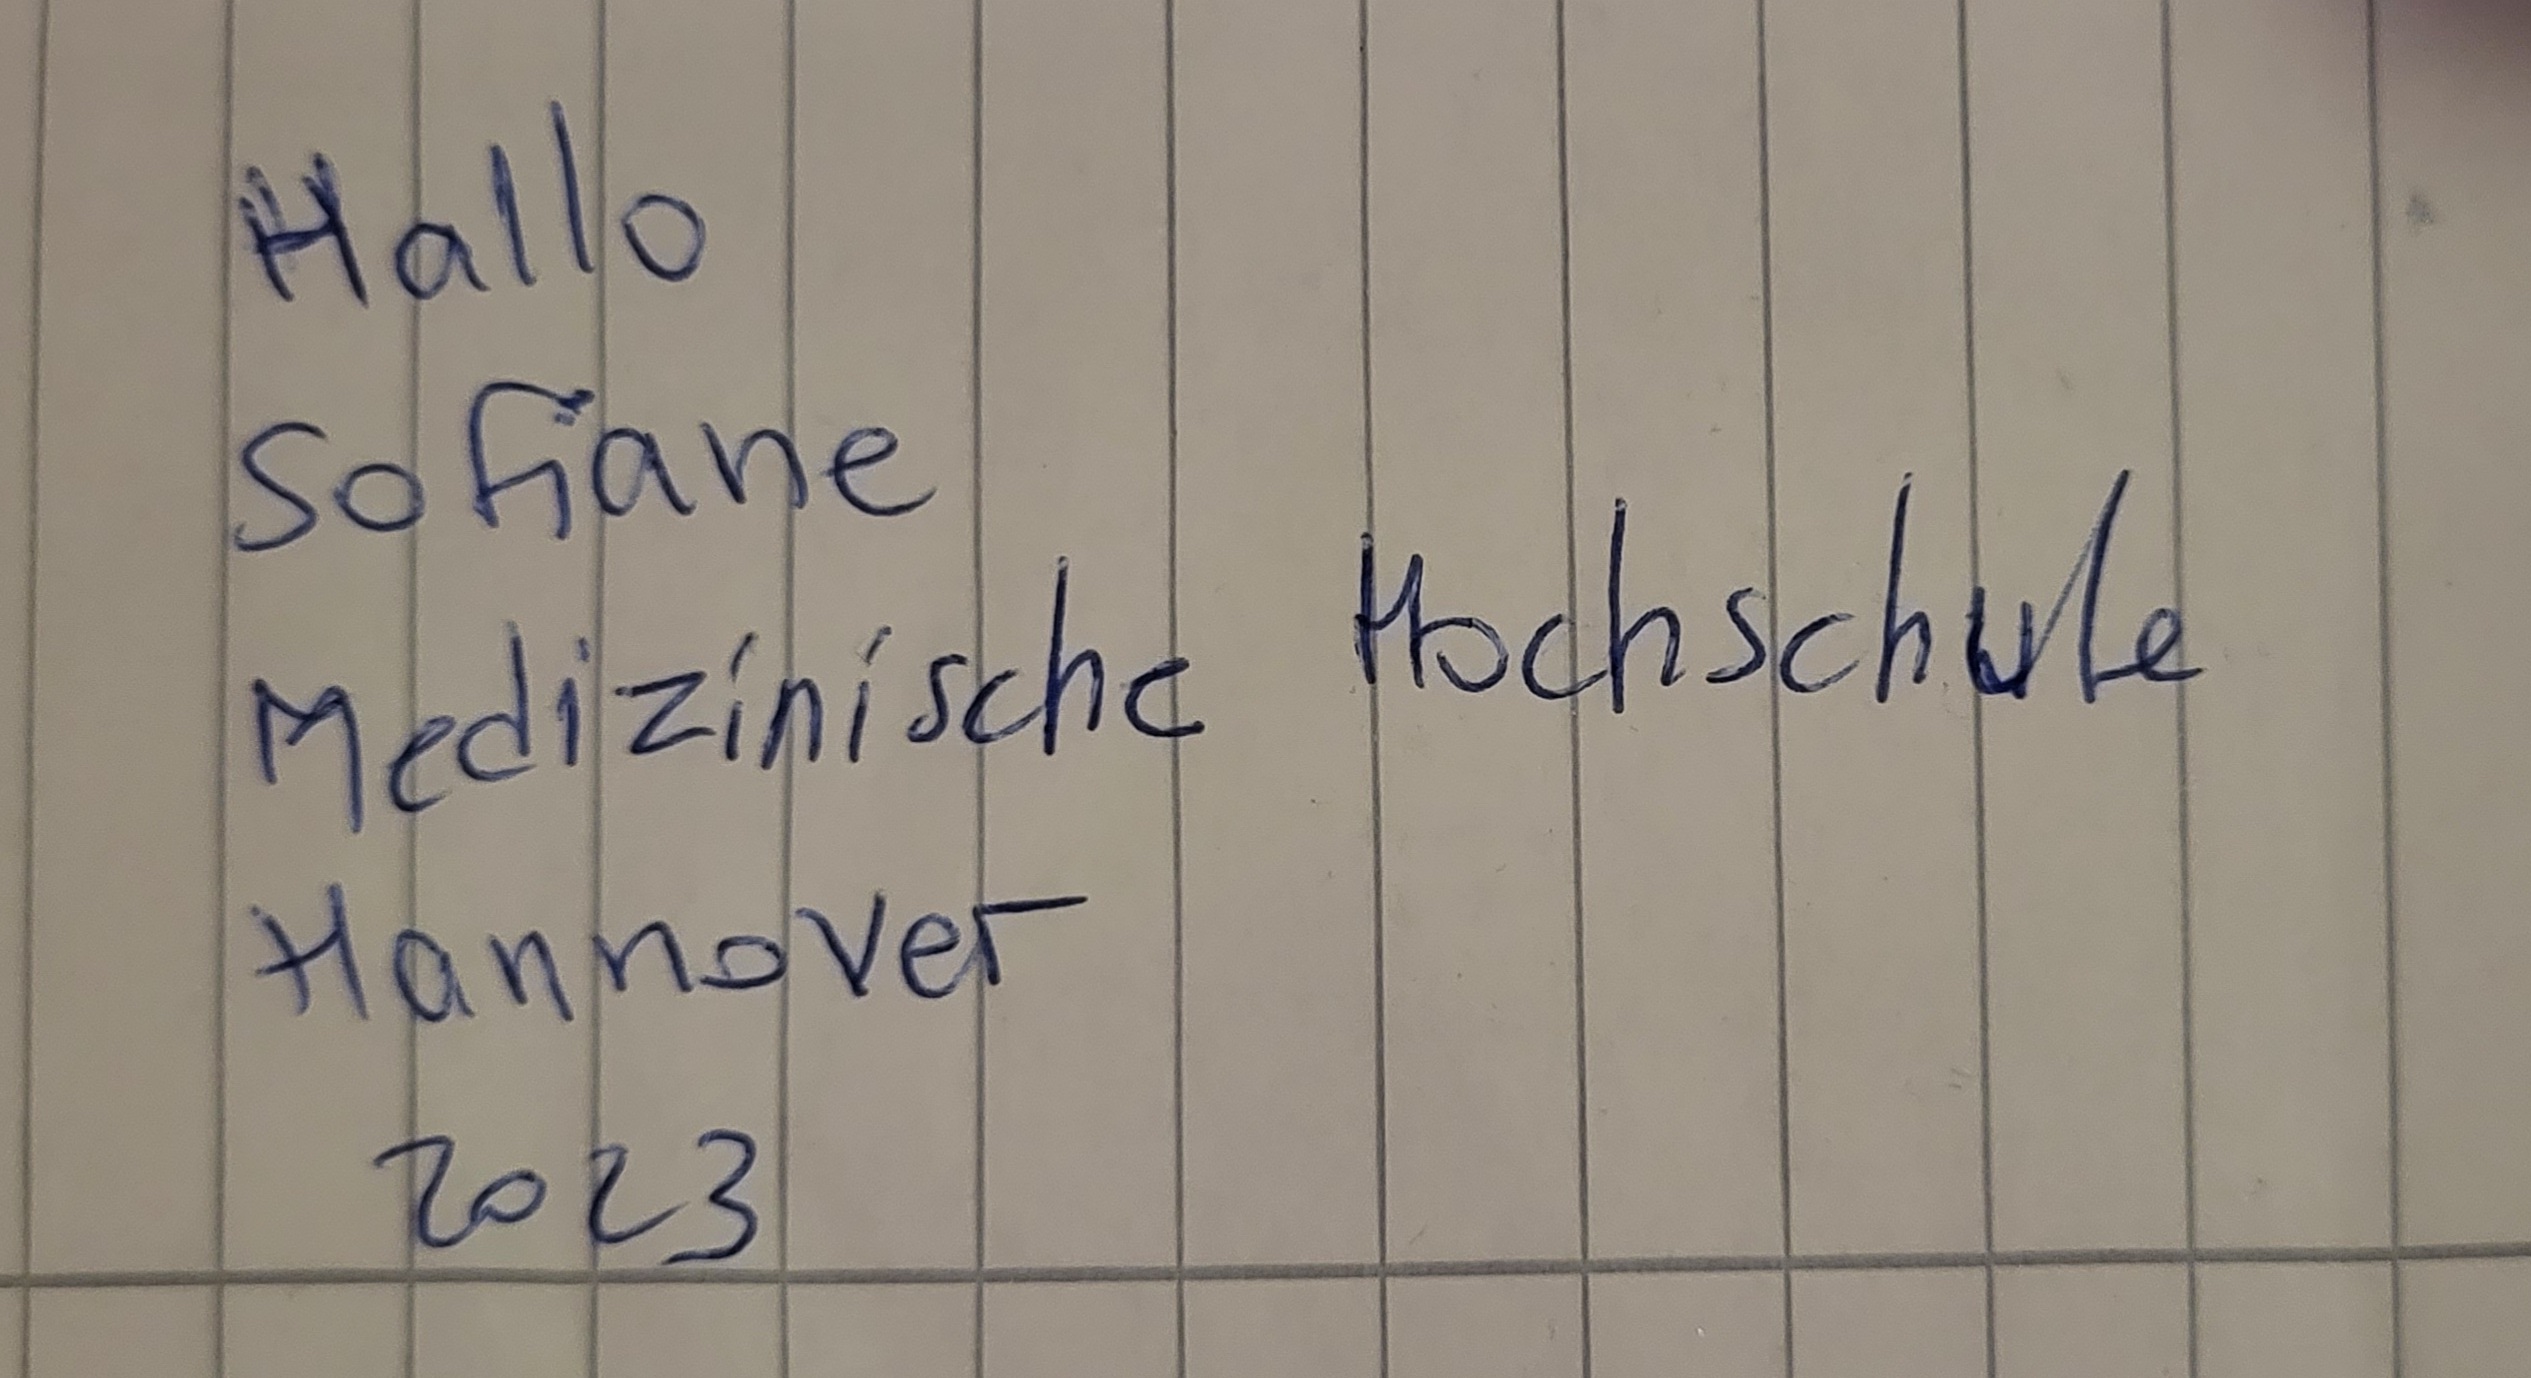 Hallo
Sofiane
Medizinische Hochschule
Hannover
2023